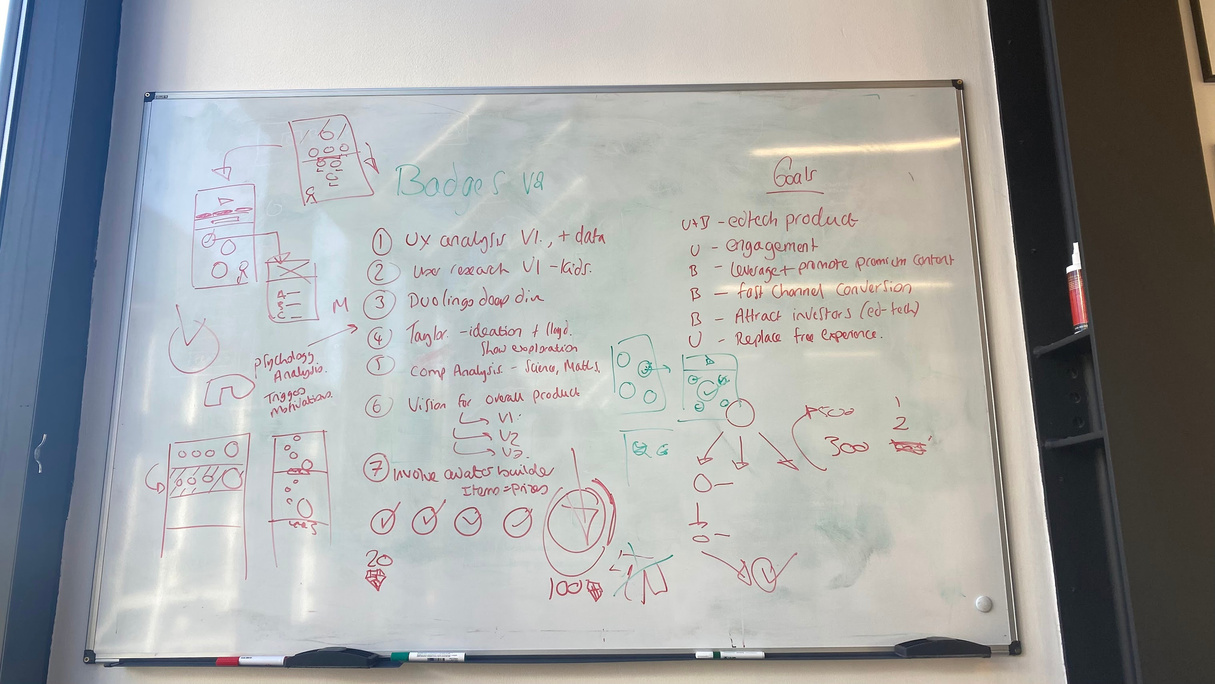 Badges V2
① UX analysis V1., + data
② user research V1 - kids.
③ Duolingo deep dive
④ Taylor - ideation + Lloyd.
Show exploration
⑤ Comp Analysis - Science, Maths.
⑥ Vision for overall product
V1.
V2
V3.
⑦ Involve avatar builder
Items = prizes
20
100
M
Psychology
Analysis.
Triggers
Motivations.
A -
B -
C -
Goals
U+B - edtech product
U - engagement
B - Leverage + promote premium content
B - fast Channel Conversion
B - Attract investors (ed-tech)
U - Replace free experience.
500
300
1
2